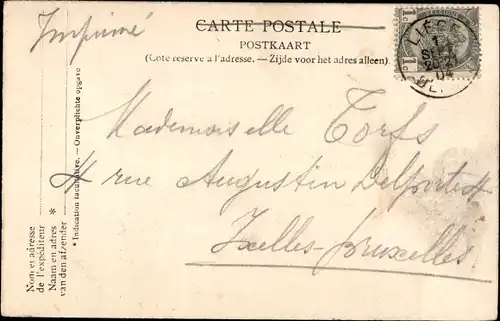 Imprimé
CARTE POSTALE
POSTKAART
(Côté réservé à l'adresse. — Zijde voor het adres alleen).
LIÉGE
1
SEPT
04
1c
1c
Mademoiselle Torfs
4 rue Augustin Delporte
Ixelles-bruxelles
Nom et adresse
de l'expéditeur
Naam en adres
van den afzender
*
* Indication facultative. — Onverplichte opgave